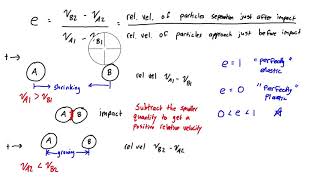 e = (v_B2 - v_A2) / (v_A1 - v_B1) = rel. vel. of particles separation just after impact / rel. vel. of particles approach just before impact
+→
A B
shrinking
v_A1 > v_B1
rel vel v_A1 - v_B1
e = 1 "perfectly elastic"
A B
impact
Subtract the smaller
quantity to get a
positive relative velocity
e = 0 "Perfectly Plastic"
0 < e < 1
+→
A B
growing
v_A2 < v_B2
rel vel v_B2 - v_A2